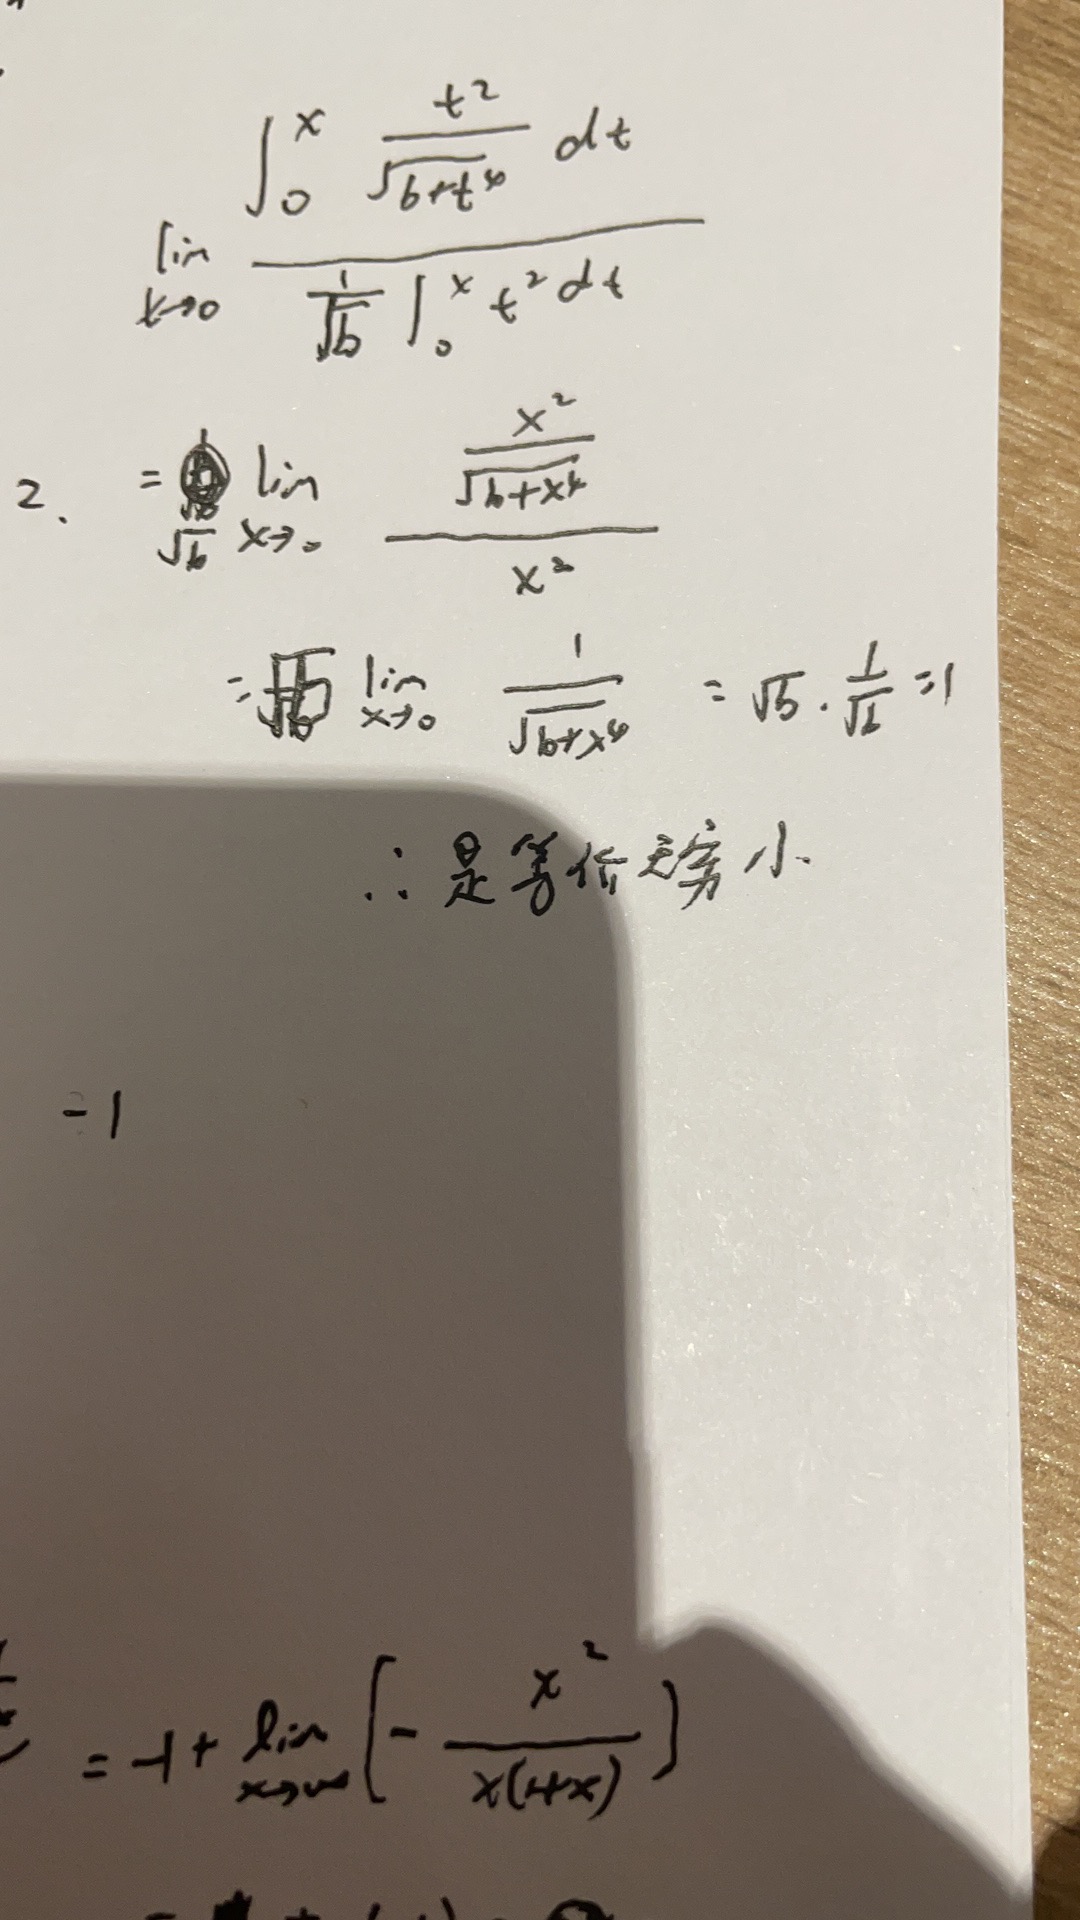 lim x→0 ∫₀ˣ t²/√(b+t⁴) dt / (1/√b ∫₀ˣ t² dt)
2. = √b lim x→0 (x²/√(b+x⁴)) / x²
= √b lim x→0 1/√(b+x⁴) = √b · 1/√b = 1
∴ 是等价无穷小.
-1
= -1 + lim x→∞ [- x²/(x(1+x))]